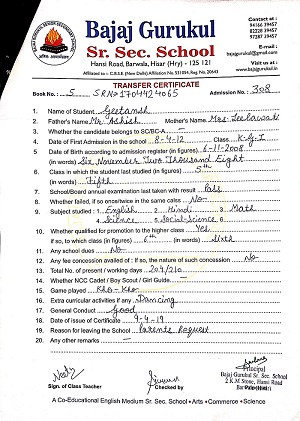 Contact at :
94166 39257
82228 39457
82227 39457
E-mail :
bajajgurukul@gmail.com
Visit us at :
Bajaj Gurukul
Sr. Sec. School
Hansi Road, Barwala, Hisar (Hry) - 125 121
Affiliated to - C.B.S.E. (New Delhi) Affiliation No. 531094, Reg. No. 20643
TRANSFER CERTIFICATE
Book No.: 5 SRN01704424065 Admission No.: 308
1. Name of Student Geetansh
2. Father's Name Mr. Ashish Mother's Name Mrs. Leelawati
3. Whether the candidate belongs to SC/BC-A —
4. Date of First Admission in the school 8-4-12 Class K-G-I
5. Date of Birth according to admission register (in figures) 6-11-2008
(in words) Six November Two Thousand Eight
6. Class in which the student last studied (in figures) 5th
(in words) Fifth
7. School/Board annual examination last taken with result Pass
8. Whether failed, if so once/twice in same calss No
9. Subject studied : 1. English 2. Hindi 3. Math
4. Science 5. Social-Science 6.
10. Whether qualified for promotion to the higher class Yes
If so, to which class (in figures) 6th (in words) Sixth
11. Any school dues No
12. Any fee concession availed of : If so, the nature of such concession No
13. Total No. of present / working days 204/210
14. Whether NCC Cadet / Boy Scout / Girl Guide —
15. Game played Kho-Kho
16. Extra curricular activities if any Dancing
17. General Conduct Good
18. Date of issue of Certificate 9-4-19
19. Reason for leaving the School Parents Request
20. Any other remarks —
Sign. of Class Teacher
Checked by
Principal
Bajaj Gurukul Sr. Sec. School
2 K.M Stone, Hansi Road
A Co-Educational English Medium Sr. Sec. School • Arts • Commerce • Science